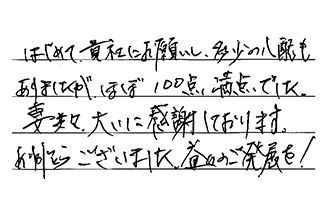 はじめて、貴社にお願いし、多少の心配も
ありましたが、ほぼ100点満点でした。
妻共々、大いに感謝しております。
ありがとうございました。益々のご発展を!